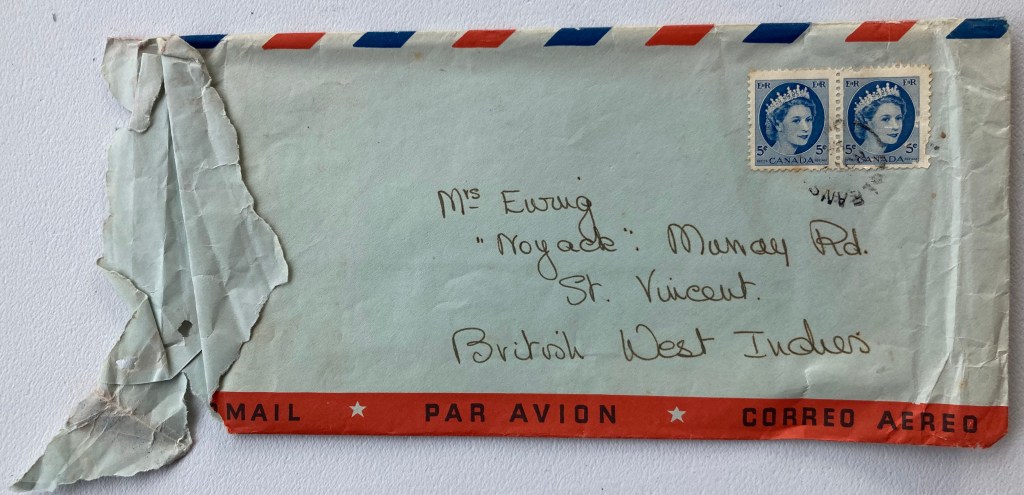 E R E R
5¢ 5¢ 5¢ 5¢
CANADA CANADA
Mrs Ewing
"Noyack": Murray Rd.
St. Vincent.
British West Indies
MAIL ★ PAR AVION ★ CORREO AEREO